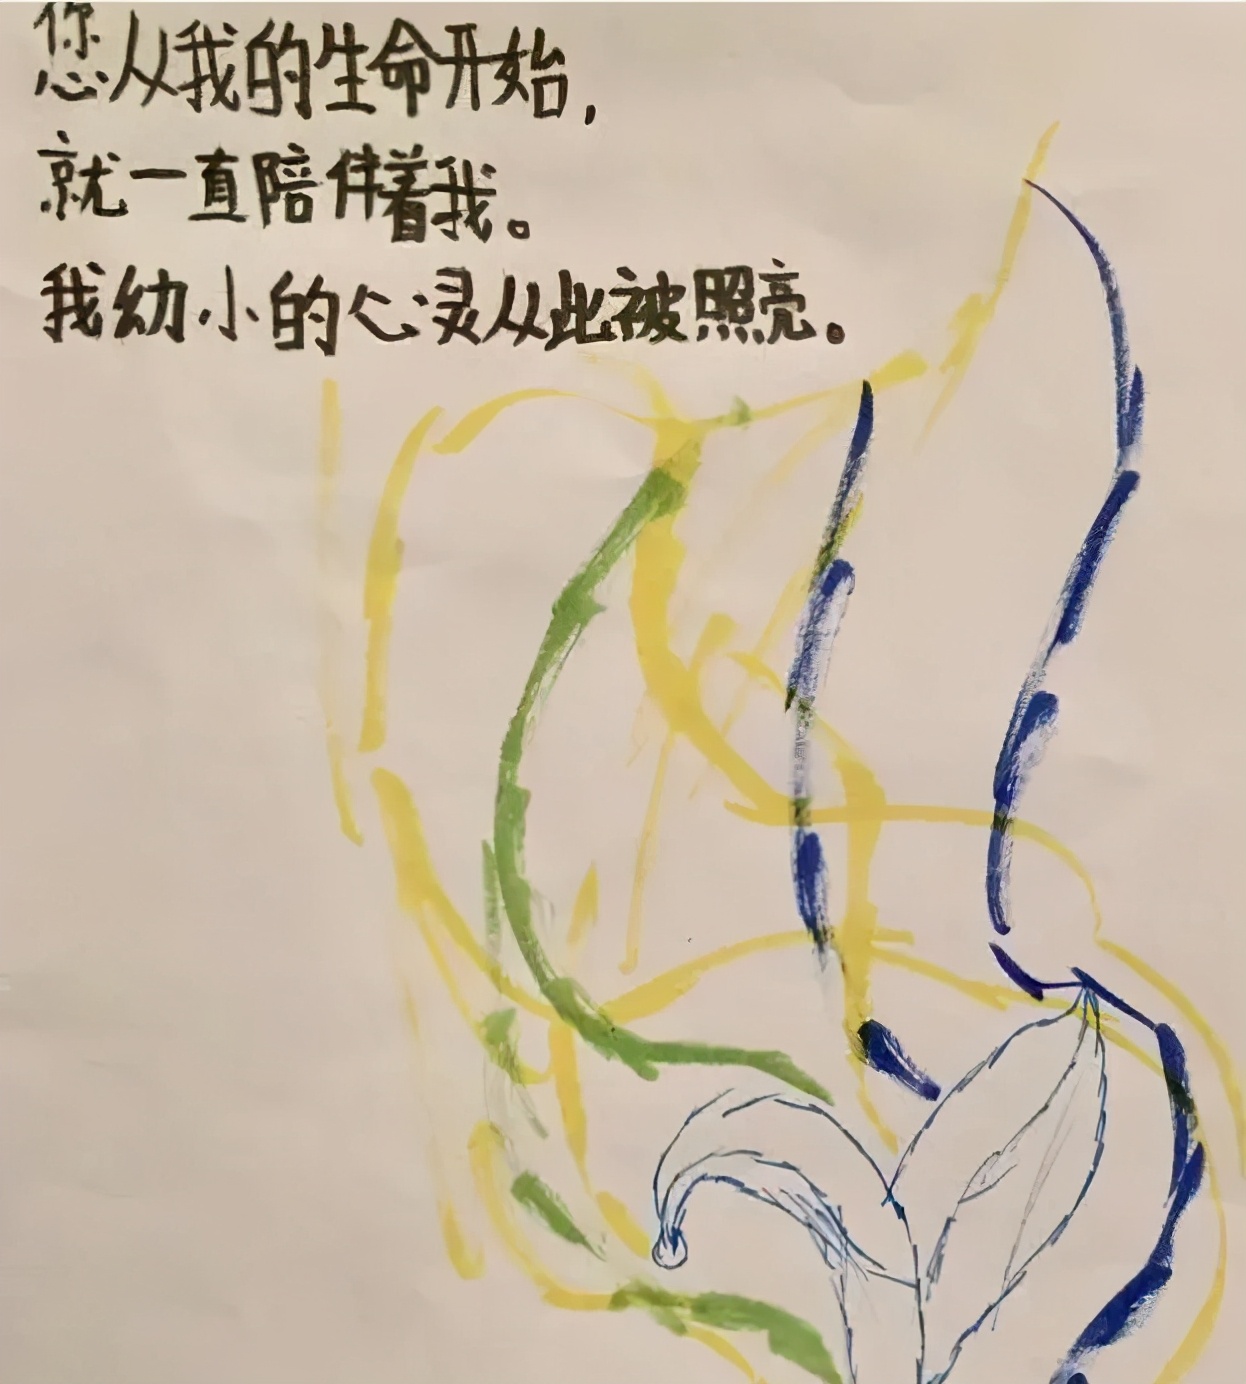 您从我的生命开始，
就一直陪伴着我。
我幼小的心灵从此被照亮。